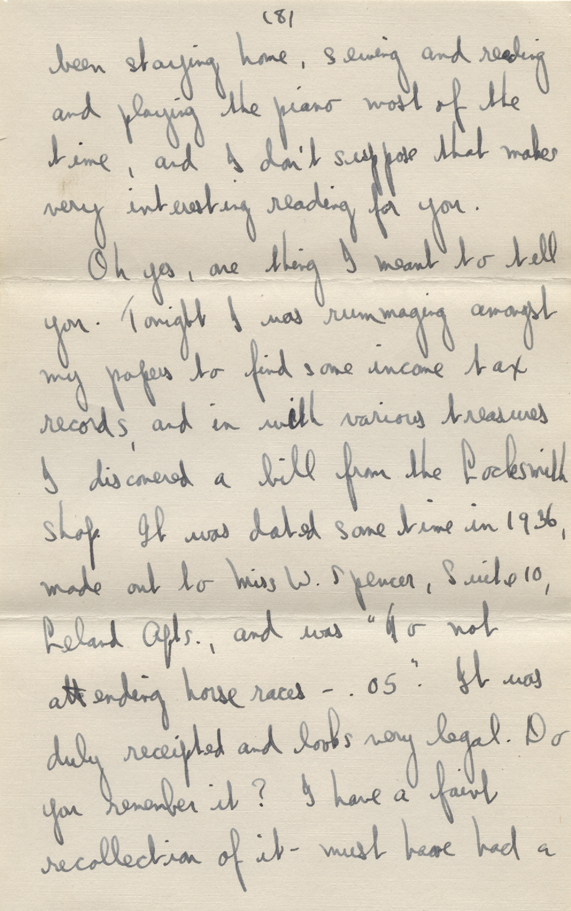 (8)
been staying home, sewing and reading
and playing the piano most of the
time, and I don't suppose that makes
very interesting reading for you.
Oh yes, one thing I meant to tell
you. Tonight I was rummaging amongst
my papers to find some income tax
records, and in with various treasures
I discovered a bill from the Locksmith
shop. It was dated some time in 1936,
made out to Miss W. Spencer, Suite 10,
Leland Apts., and was "To not
attending horse races - .05". It was
duly receipted and looks very legal. Do
you remember it? I have a faint
recollection of it - must have had a